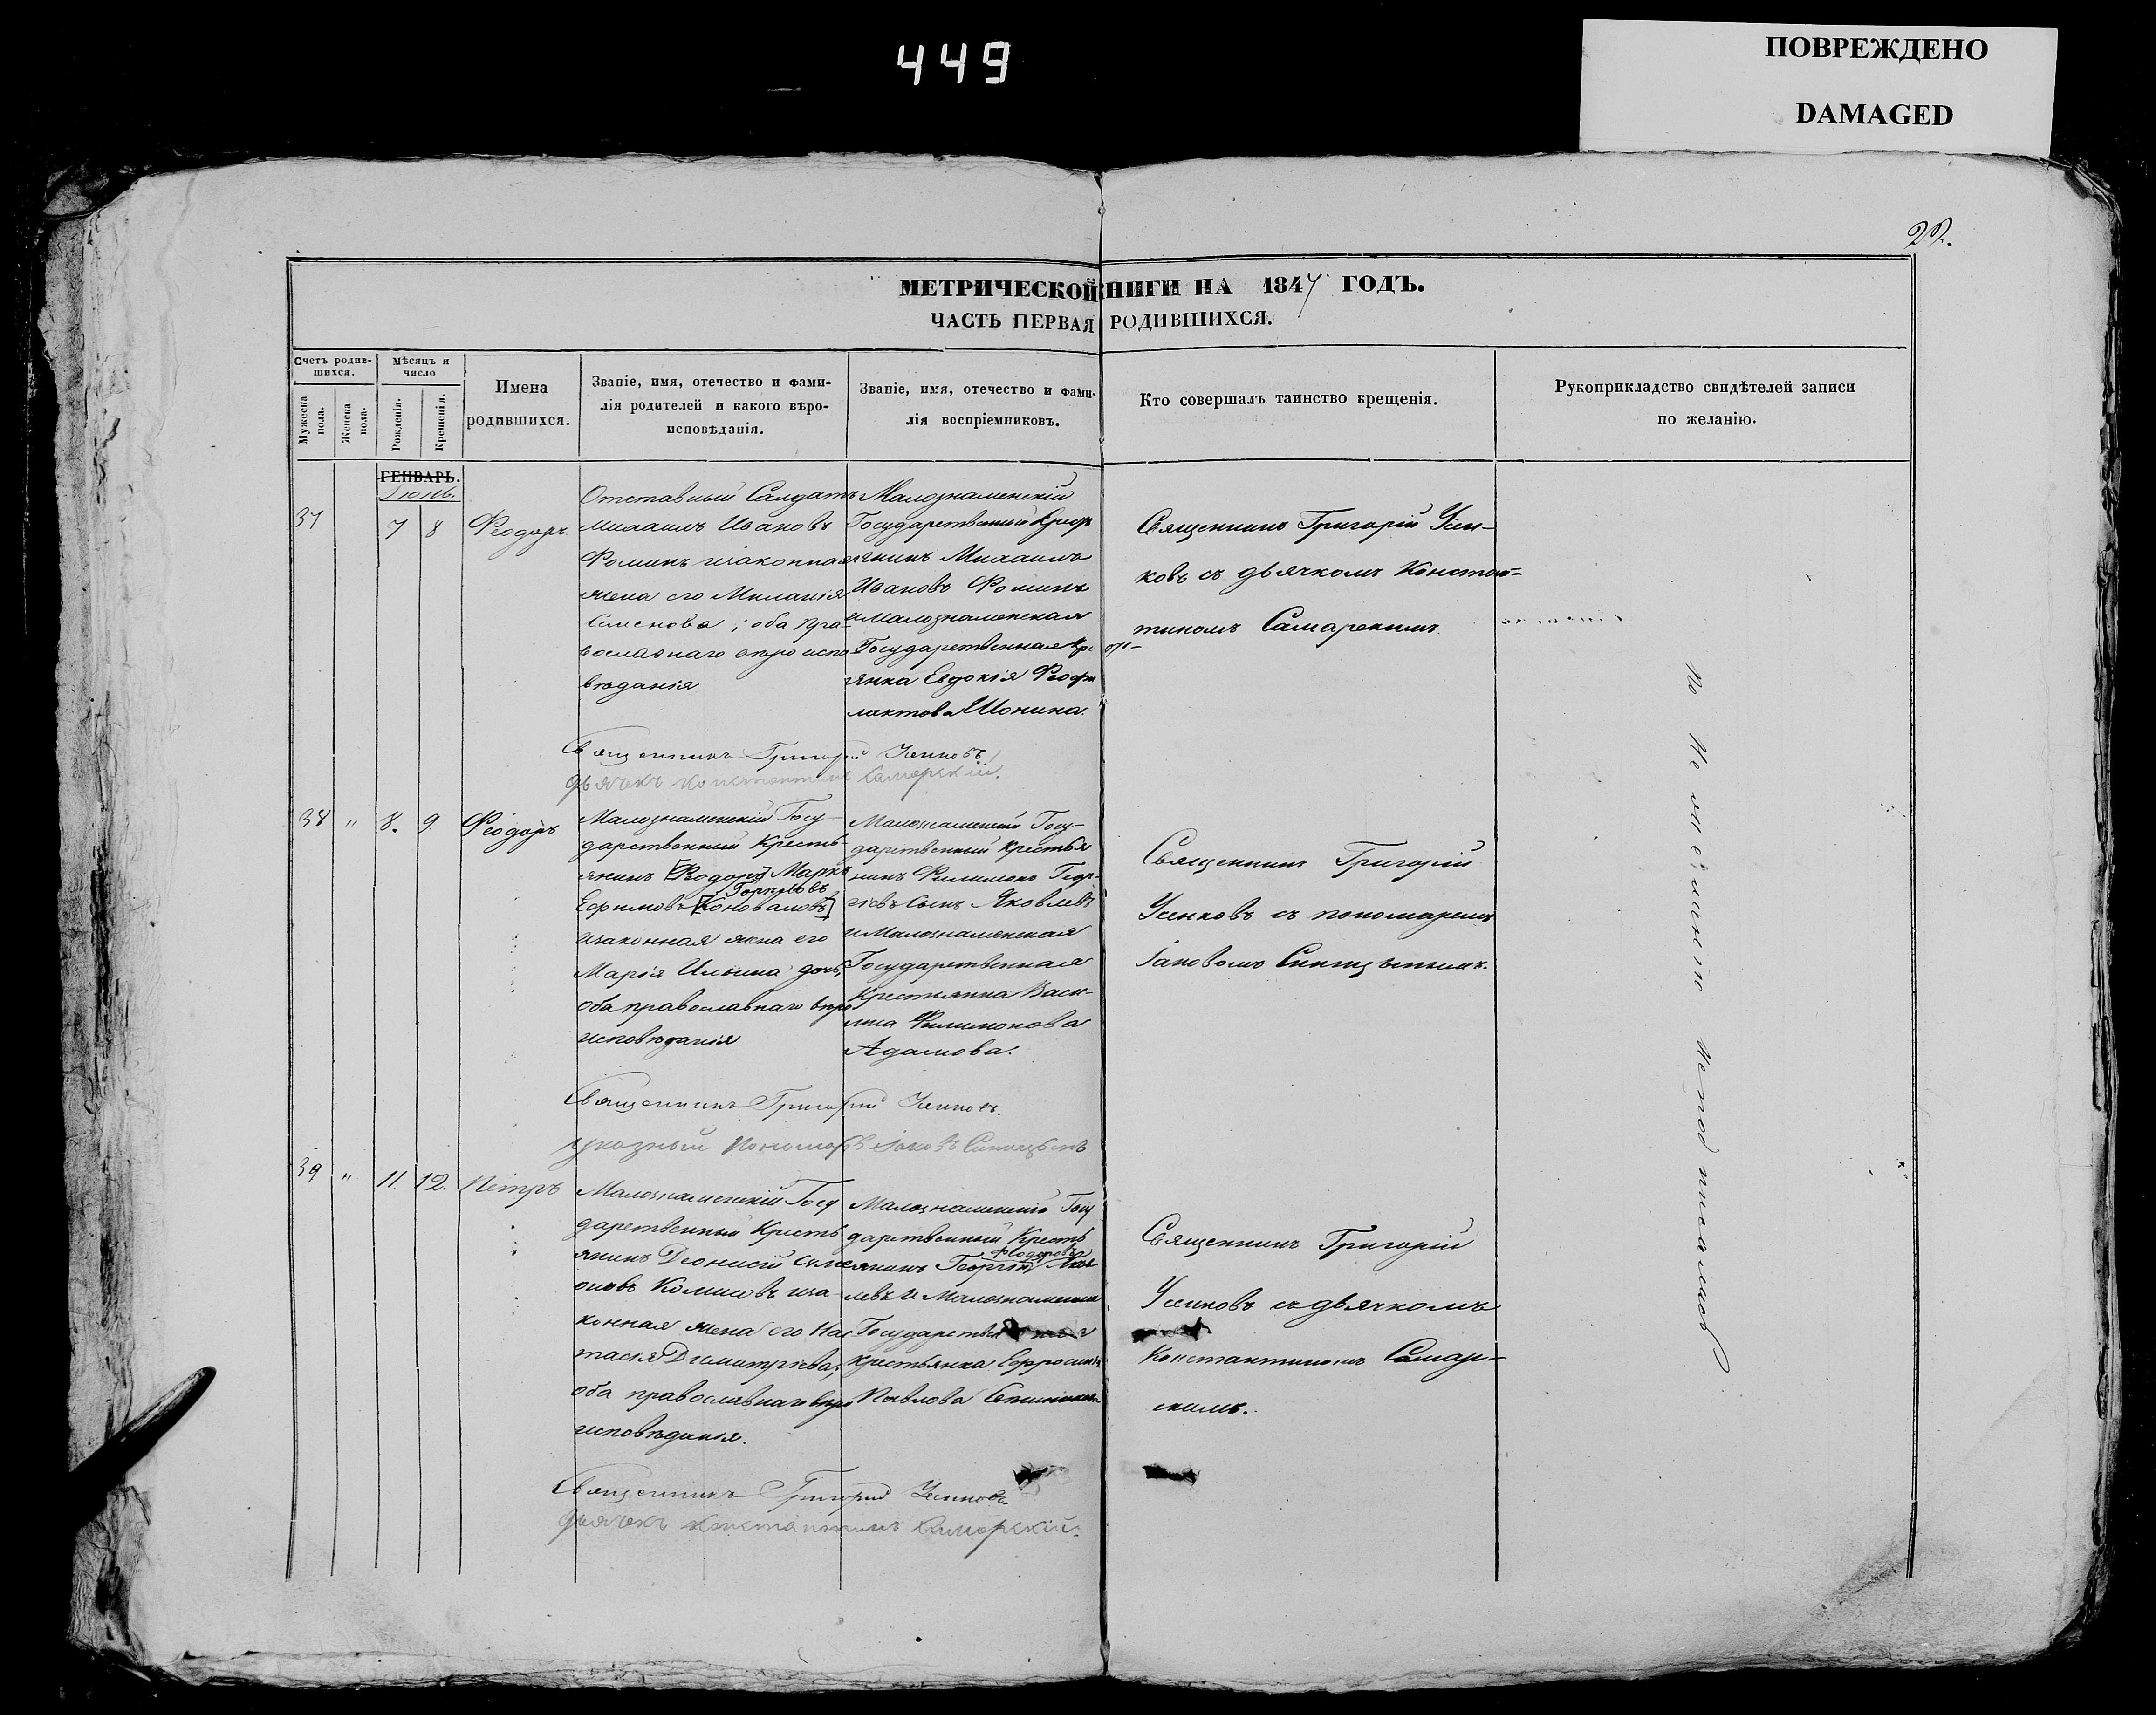 449
ПОВРЕЖДЕНО
DAMAGED
22.
МЕТРИЧЕСКОЙ КНИГИ НА 1847 ГОДЪ.
ЧАСТЬ ПЕРВАЯ РОДИВШИХСЯ.
Счетъ родив-
шихся.
Мужеска
пола.
Женска
пола.
Мѣсяцъ и
число
Рожденія.
Крещенія.
Имена
родившихся.
Званіе, имя, отечество и фами-
лія родителей и какого вѣро-
исповѣданія.
Званіе, имя, отечество и фами-
лія воспріемниковъ.
Кто совершалъ таинство крещенія.
Рукоприкладство свидѣтелей записи
по желанію.
ГЕНВАРЬ.
37
7
8
Феодоръ
Отставный Салдатъ
Михаилъ Ивановъ
Фоминъ изаконная
жена его Миланія
Семенова; оба пра-
вославнаго вѣро испо
вѣданія
Малознаменскій
Государственный
янинъ Михаилъ
Ивановъ Фоминъ
и Малознаменская
Государственная кре
янка Евдокія Феофи
лактова Шонина.
Священникъ Григорій Усен-
ковъ съ дьячкомъ Констан-
тиномъ Самарскимъ
Священникъ Григорій Усенковъ
дьячекъ Константинъ Самарскій.
38
"
8.
9
Феодоръ
Малознаменскій Госу-
дарственный Кресть-
янинъ [Феодоръ] Марко
Горкловъ
Ефимовъ [Коноваловъ]
изаконная жена его
Марія Ильина дочь,
оба православнаго вѣро
исповѣданія
Малознаменскій Госу-
дарственный Крестья
нинъ Филимонъ Геор-
гіевъ Сынъ Яковлевъ
и Малознаменская
Государственная
Крестьянка Васи-
лиса Филимонова
Адамова.
Священникъ Григорій
Усенковъ съ пономаремъ
Іаковомъ Синицынымъ.
Священникъ Григорій Усенковъ.
указный Пономарь Іаковъ Синицынъ
39
"
11.
12.
Петръ
Малознаменскій Госу
дарственный Кресть
янинъ Діонисій Симе
оновъ Комисовъ иза-
конная жена его Нас
тасія Димитріева;
оба православнаго вѣро
исповѣданія.
Малознаменскій Госу
дарственный Кресть
Феодоровъ
янинъ Георгій Яков
левъ и Малознаменская
Государственная
крестьянка Ефросинія
Павлова
Священникъ Григорій
Усенковъ съ дьячкомъ
Константиномъ Самар-
скимъ.
Священникъ Григорій Усенковъ.
дьячекъ Константинъ Самарскій.
По не желанію не подписались